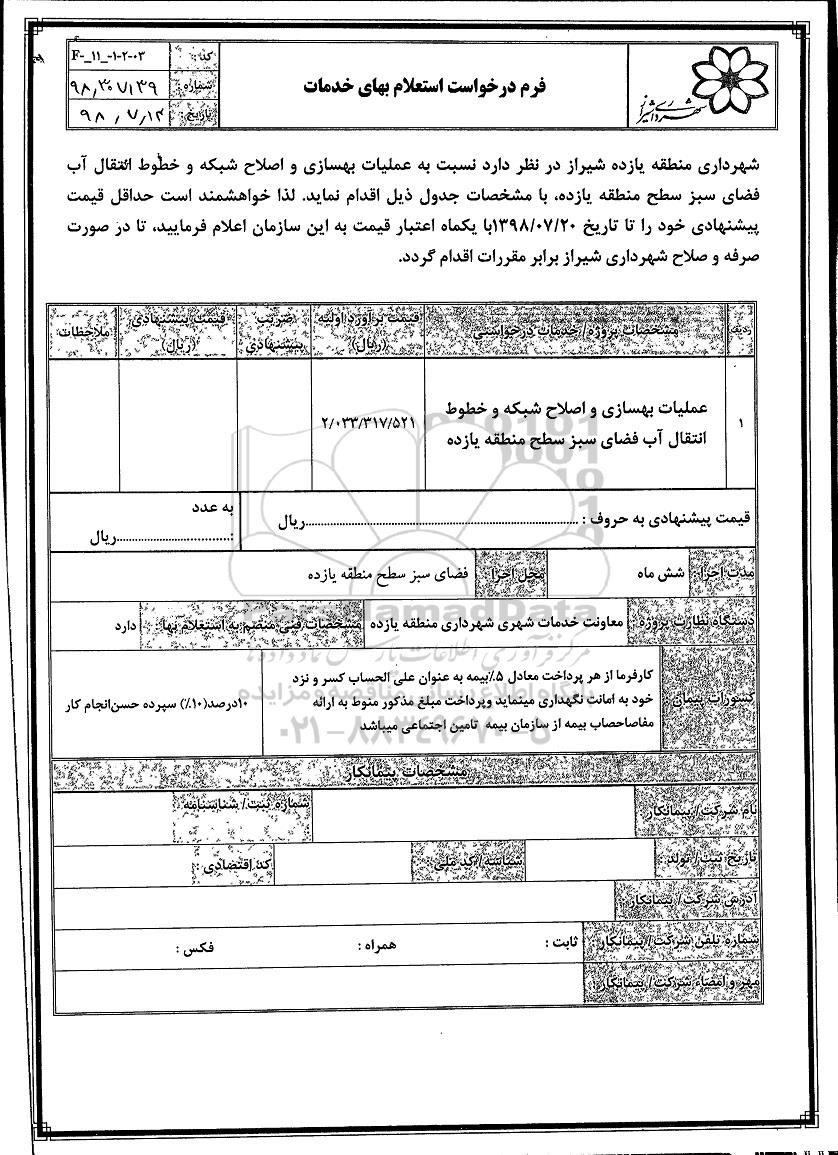 شهرداری شیراز
فرم درخواست استعلام بهای خدمات
کد : F-_۱۱_-۱-۲-۰۳
شماره: ۹۸٫۳۰۷۱۳۹
تاریخ: ۹۸٫۷٫۱۲
شهرداری منطقه یازده شیراز در نظر دارد نسبت به عملیات بهسازی و اصلاح شبکه و خطوط انتقال آب
فضای سبز سطح منطقه یازده، با مشخصات جدول ذیل اقدام نماید. لذا خواهشمند است حداقل قیمت
پیشنهادی خود را تا تاریخ ۱۳۹۸/۰۷/۲۰با یکماه اعتبار قیمت به این سازمان اعلام فرمایید، تا در صورت
صرفه و صلاح شهرداری شیراز برابر مقررات اقدام گردد.
ردیف مشخصات پروژه/خدمات درخواستی قیمت برآورد اولیه (ریال) ضریب پیشنهادی قیمت پیشنهادی (ریال) ملاحظات
۱ عملیات بهسازی و اصلاح شبکه و خطوط ۲/۰۳۳/۳۱۷/۵۲۱
انتقال آب فضای سبز سطح منطقه یازده
قیمت پیشنهادی به حروف : ......................................................ریال
به عدد
:................................ریال
مدت اجرا : شش ماه محل اجرا : فضای سبز سطح منطقه یازده
دستگاه نظارت پروژه : معاونت خدمات شهری شهرداری منطقه یازده مشخصات فنی منضم به استعلام بها : دارد
کسورات پیمان :
کارفرما از هر پرداخت معادل ۵٪بیمه به عنوان علی الحساب کسر و نزد
خود به امانت نگهداری مینماید وپرداخت مبلغ مذکور منوط به ارائه
مفاصاحصاب بیمه از سازمان بیمه تامین اجتماعی میباشد
۱۰درصد(۱۰٪) سپرده حسن‌انجام کار
مشخصات پیمانکار
نام شرکت/ پیمانکار : شماره ثبت/ شناسنامه :
تاریخ ثبت/ تولد : شناسه/ کد ملی : کد اقتصادی :
آدرس شرکت/ پیمانکار :
شماره تلفن شرکت/ پیمانکار : ثابت : همراه : فکس :
مهر و امضاء شرکت/ پیمانکار :
ParsNamadData
۰۲۱-۸۸۳۴۹۶۷۰-۵